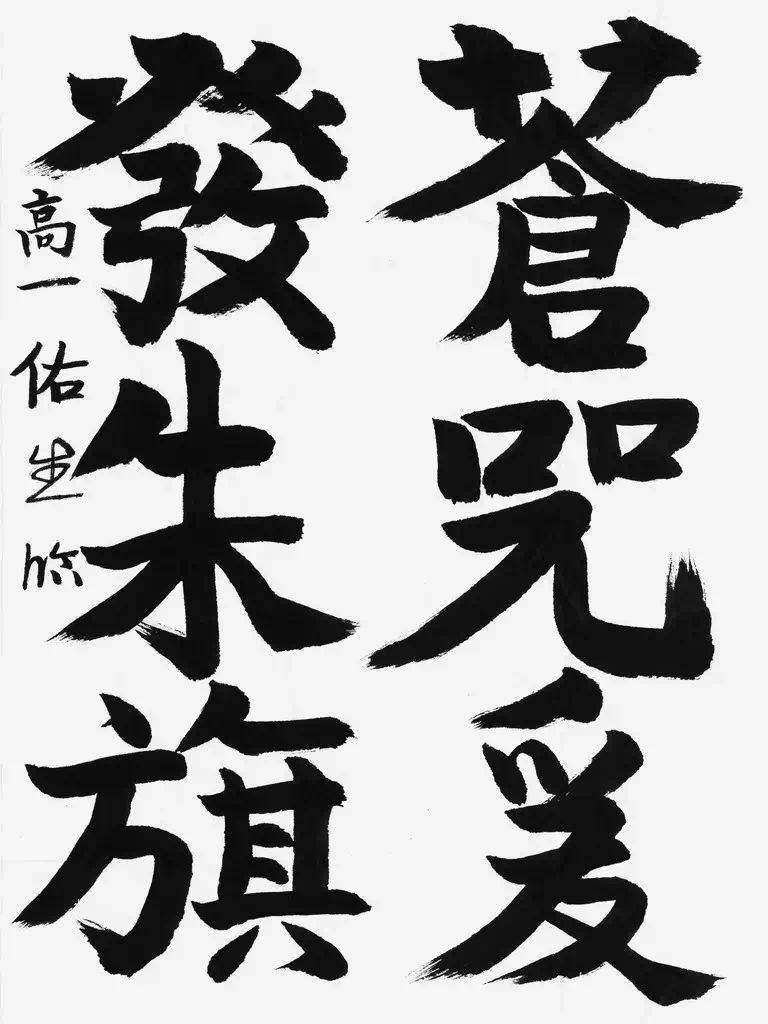 蒼咒爰
發朱旗
高一 佑生 臨